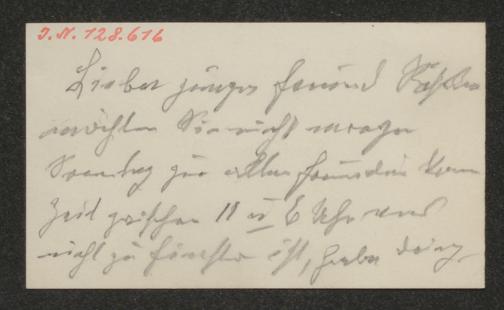 I.N. 128.616
Lieber junger Freund
möchten Sie nicht morgen
Sonntag zur alten Freundin kom
Zeit zwischen 11 u 6 Uhr und
nicht zu finster ist, habe